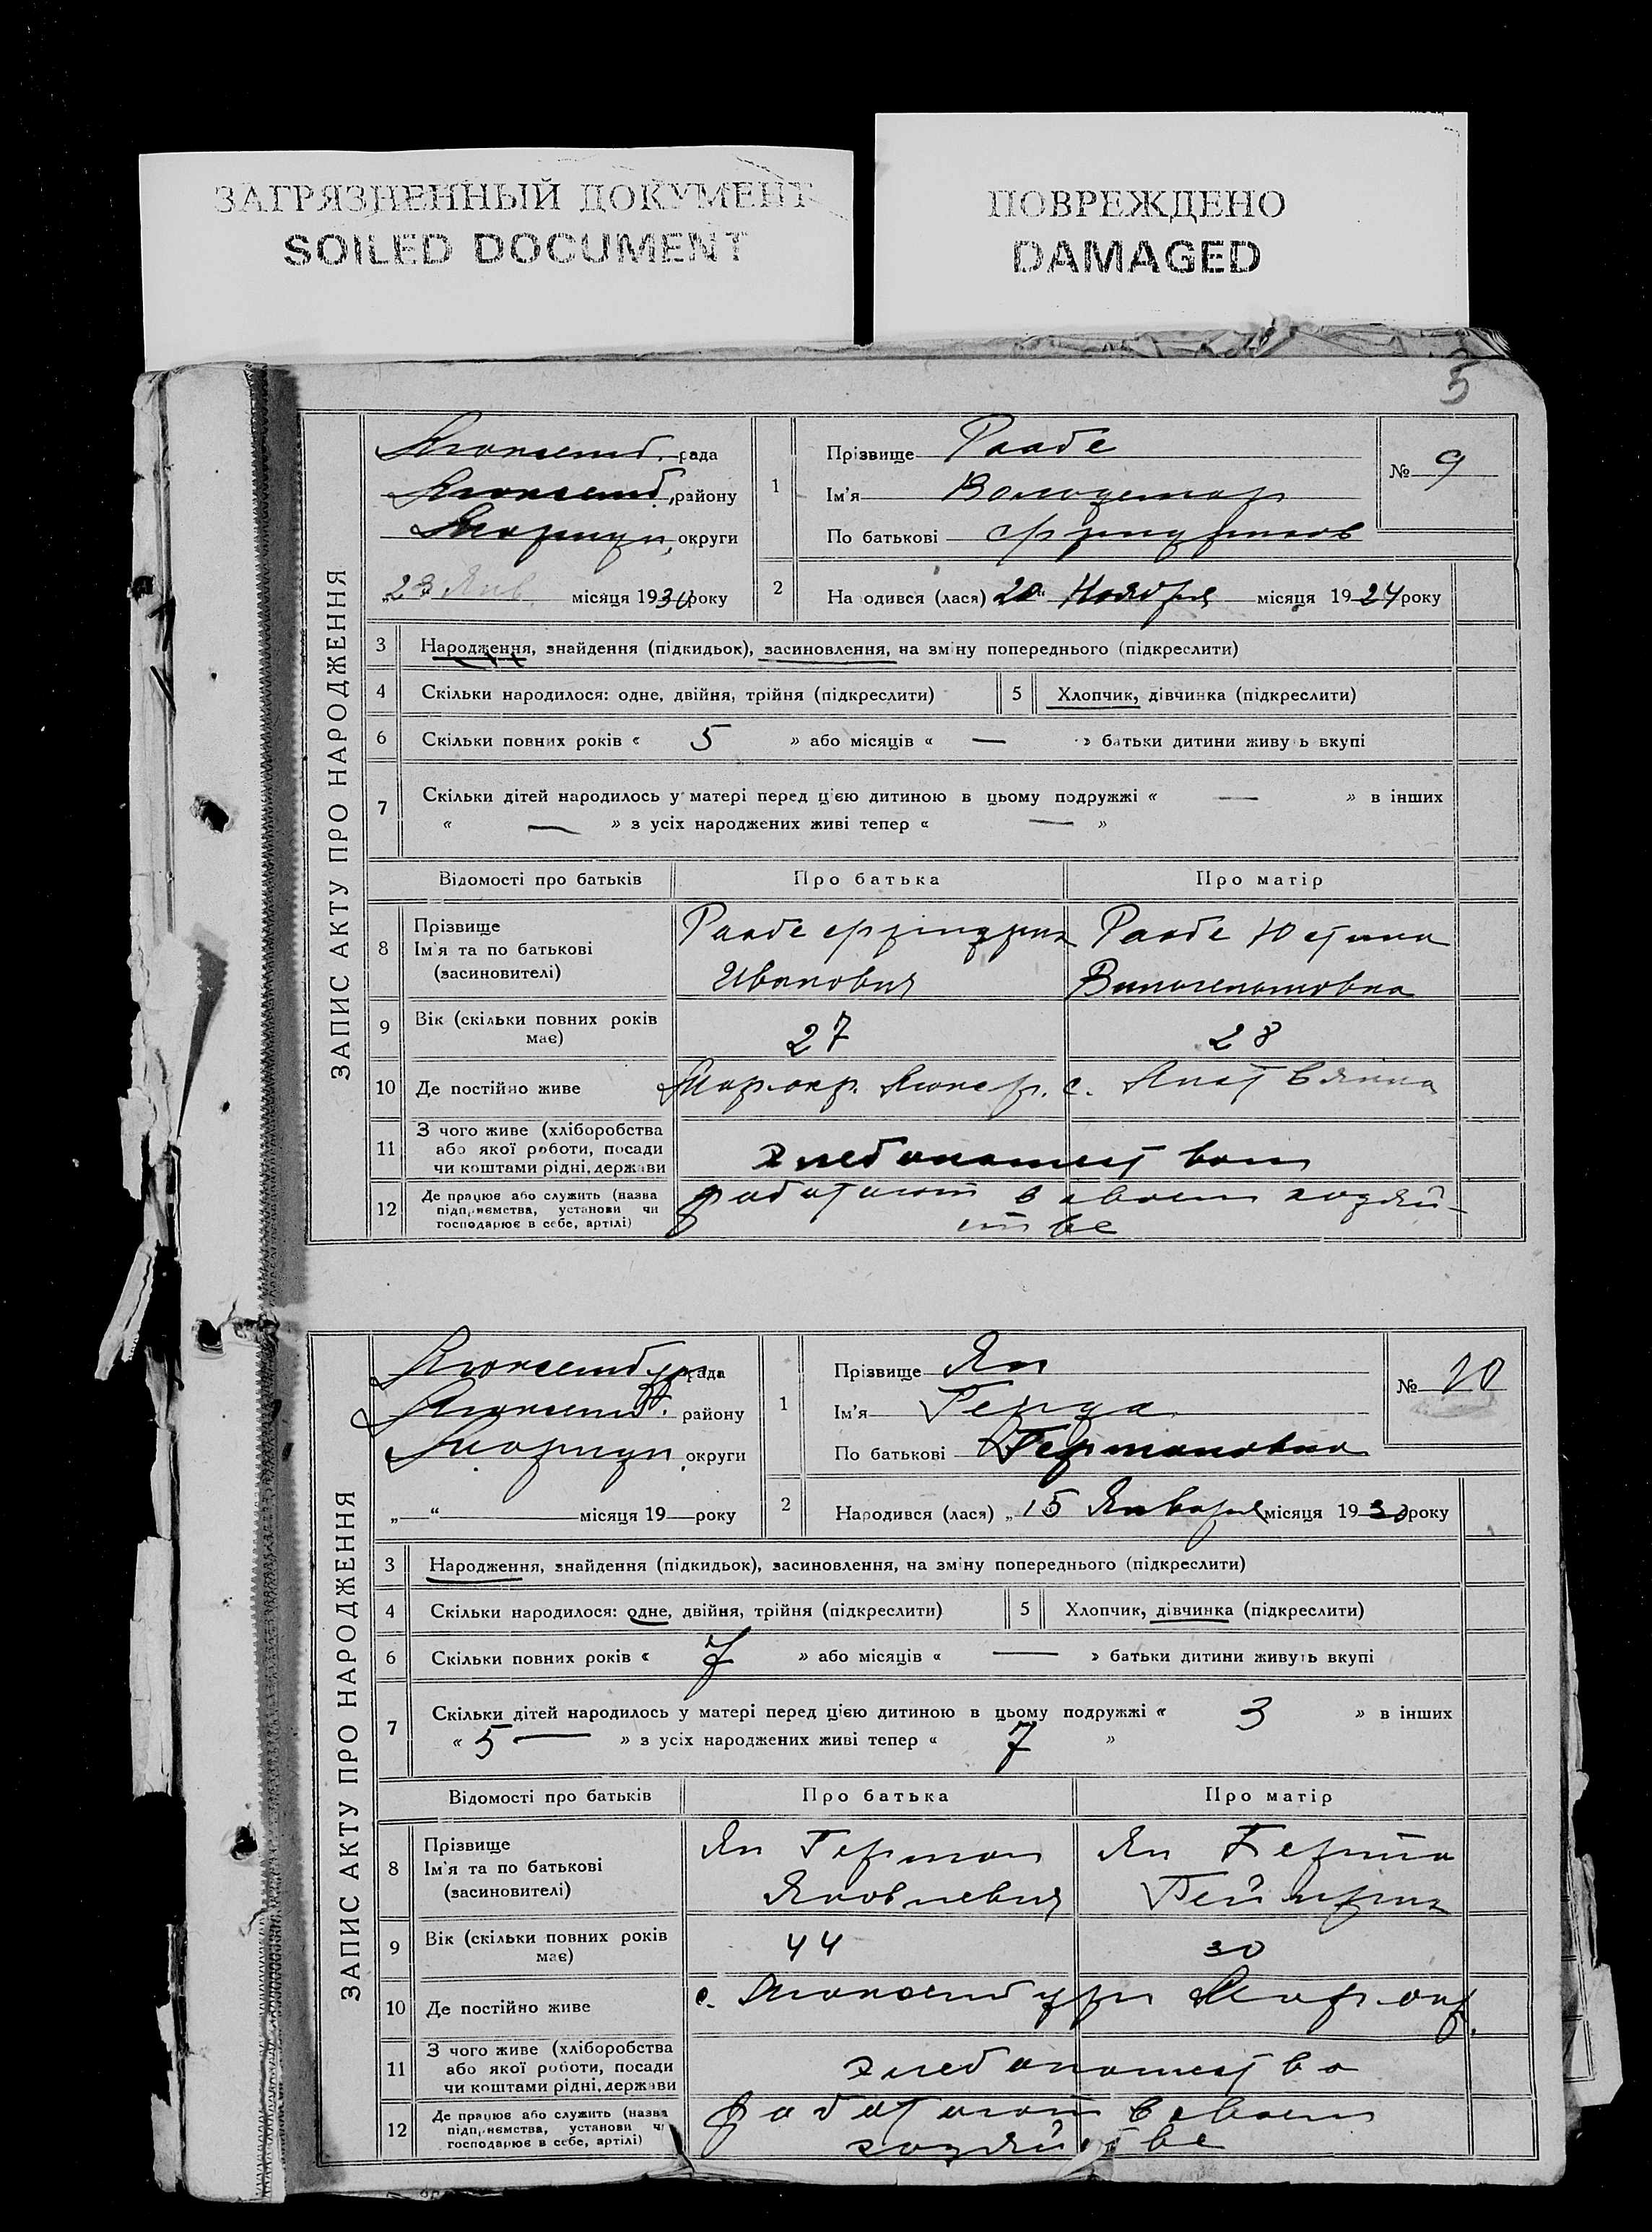 ЗАГРЯЗНЕННЫЙ ДОКУМЕНТ
SOILED DOCUMENT
ПОВРЕЖДЕНО
DAMAGED
5
ЗАПИС АКТУ ПРО НАРОДЖЕННЯ
Люксемб. рада
Люксемб. району
Мариуп. округи
„23 Янв. місяця 1930 року
1
Прізвище Раабе
Ім'я
По батькові
№ 9
2
На одився (лася) 20" Ноября місяця 1924 року
3 Народження, знайдення (підкидьок), засиновлення, на зміну попереднього (підкреслити)
4 Скільки народилося: одне, двійня, трійня (підкреслити)
5 Хлопчик, дівчинка (підкреслити)
6 Скільки повних років « 5 » або місяців « — » батьки дитини живу ь вкупі
7 Скільки дітей народилось у матері перед цією дитиною в цьому подружжі « — » в інших
« — » з усіх народжених живі тепер « — »
Відомості про батьків Про батька Про матір
8 Прізвище
Ім'я та по батькові
(засиновителі)
Раабе Фридрих
Иванович
Раабе Юстина
9 Вік (скільки повних років
має)
27 28
10 Де постійно живе Мар. окр. Люкс. р. с.
11 З чого живе (хліборобства
або якої роботи, посади
чи коштами рідні, держави
хлебопашеством
12 Де працює або служить (назва
підприємства, установи чи
господарює в себе, артілі)
работают в своем хозяй-
стве
ЗАПИС АКТУ ПРО НАРОДЖЕННЯ
Люксембург рада
Люксемб. району
Мариуп. округи
„ — “ місяця 19 — року
1
Прізвище Ян
Ім'я Герда
По батькові Германовна
№ 10
2
Народився (лася) „15 Января місяця 1930 року
3 Народження, знайдення (підкидьок), засиновлення, на зміну попереднього (підкреслити)
4 Скільки народилося: одне, двійня, трійня (підкреслити)
5 Хлопчик, дівчинка (підкреслити)
6 Скільки повних років « 7 » або місяців « — » батьки дитини живуть вкупі
7 Скільки дітей народилось у матері перед цією дитиною в цьому подружжі « 3 » в інших
« 5 — » з усіх народжених живі тепер « 7 »
Відомості про батьків Про батька Про матір
8 Прізвище
Ім'я та по батькові
(засиновителі)
Ян Герман
Яковлевич
Ян Берта
9 Вік (скільки повних років
має)
44 30
10 Де постійно живе с. Люксембург Мар. окр.
11 З чого живе (хліборобства
або якої роботи, посади
чи коштами рідні, держави
хлебопашество
12 Де працює або служить (назва
підприємства, установи чи
господарює в себе, артілі)
работают в своем
хозяйстве